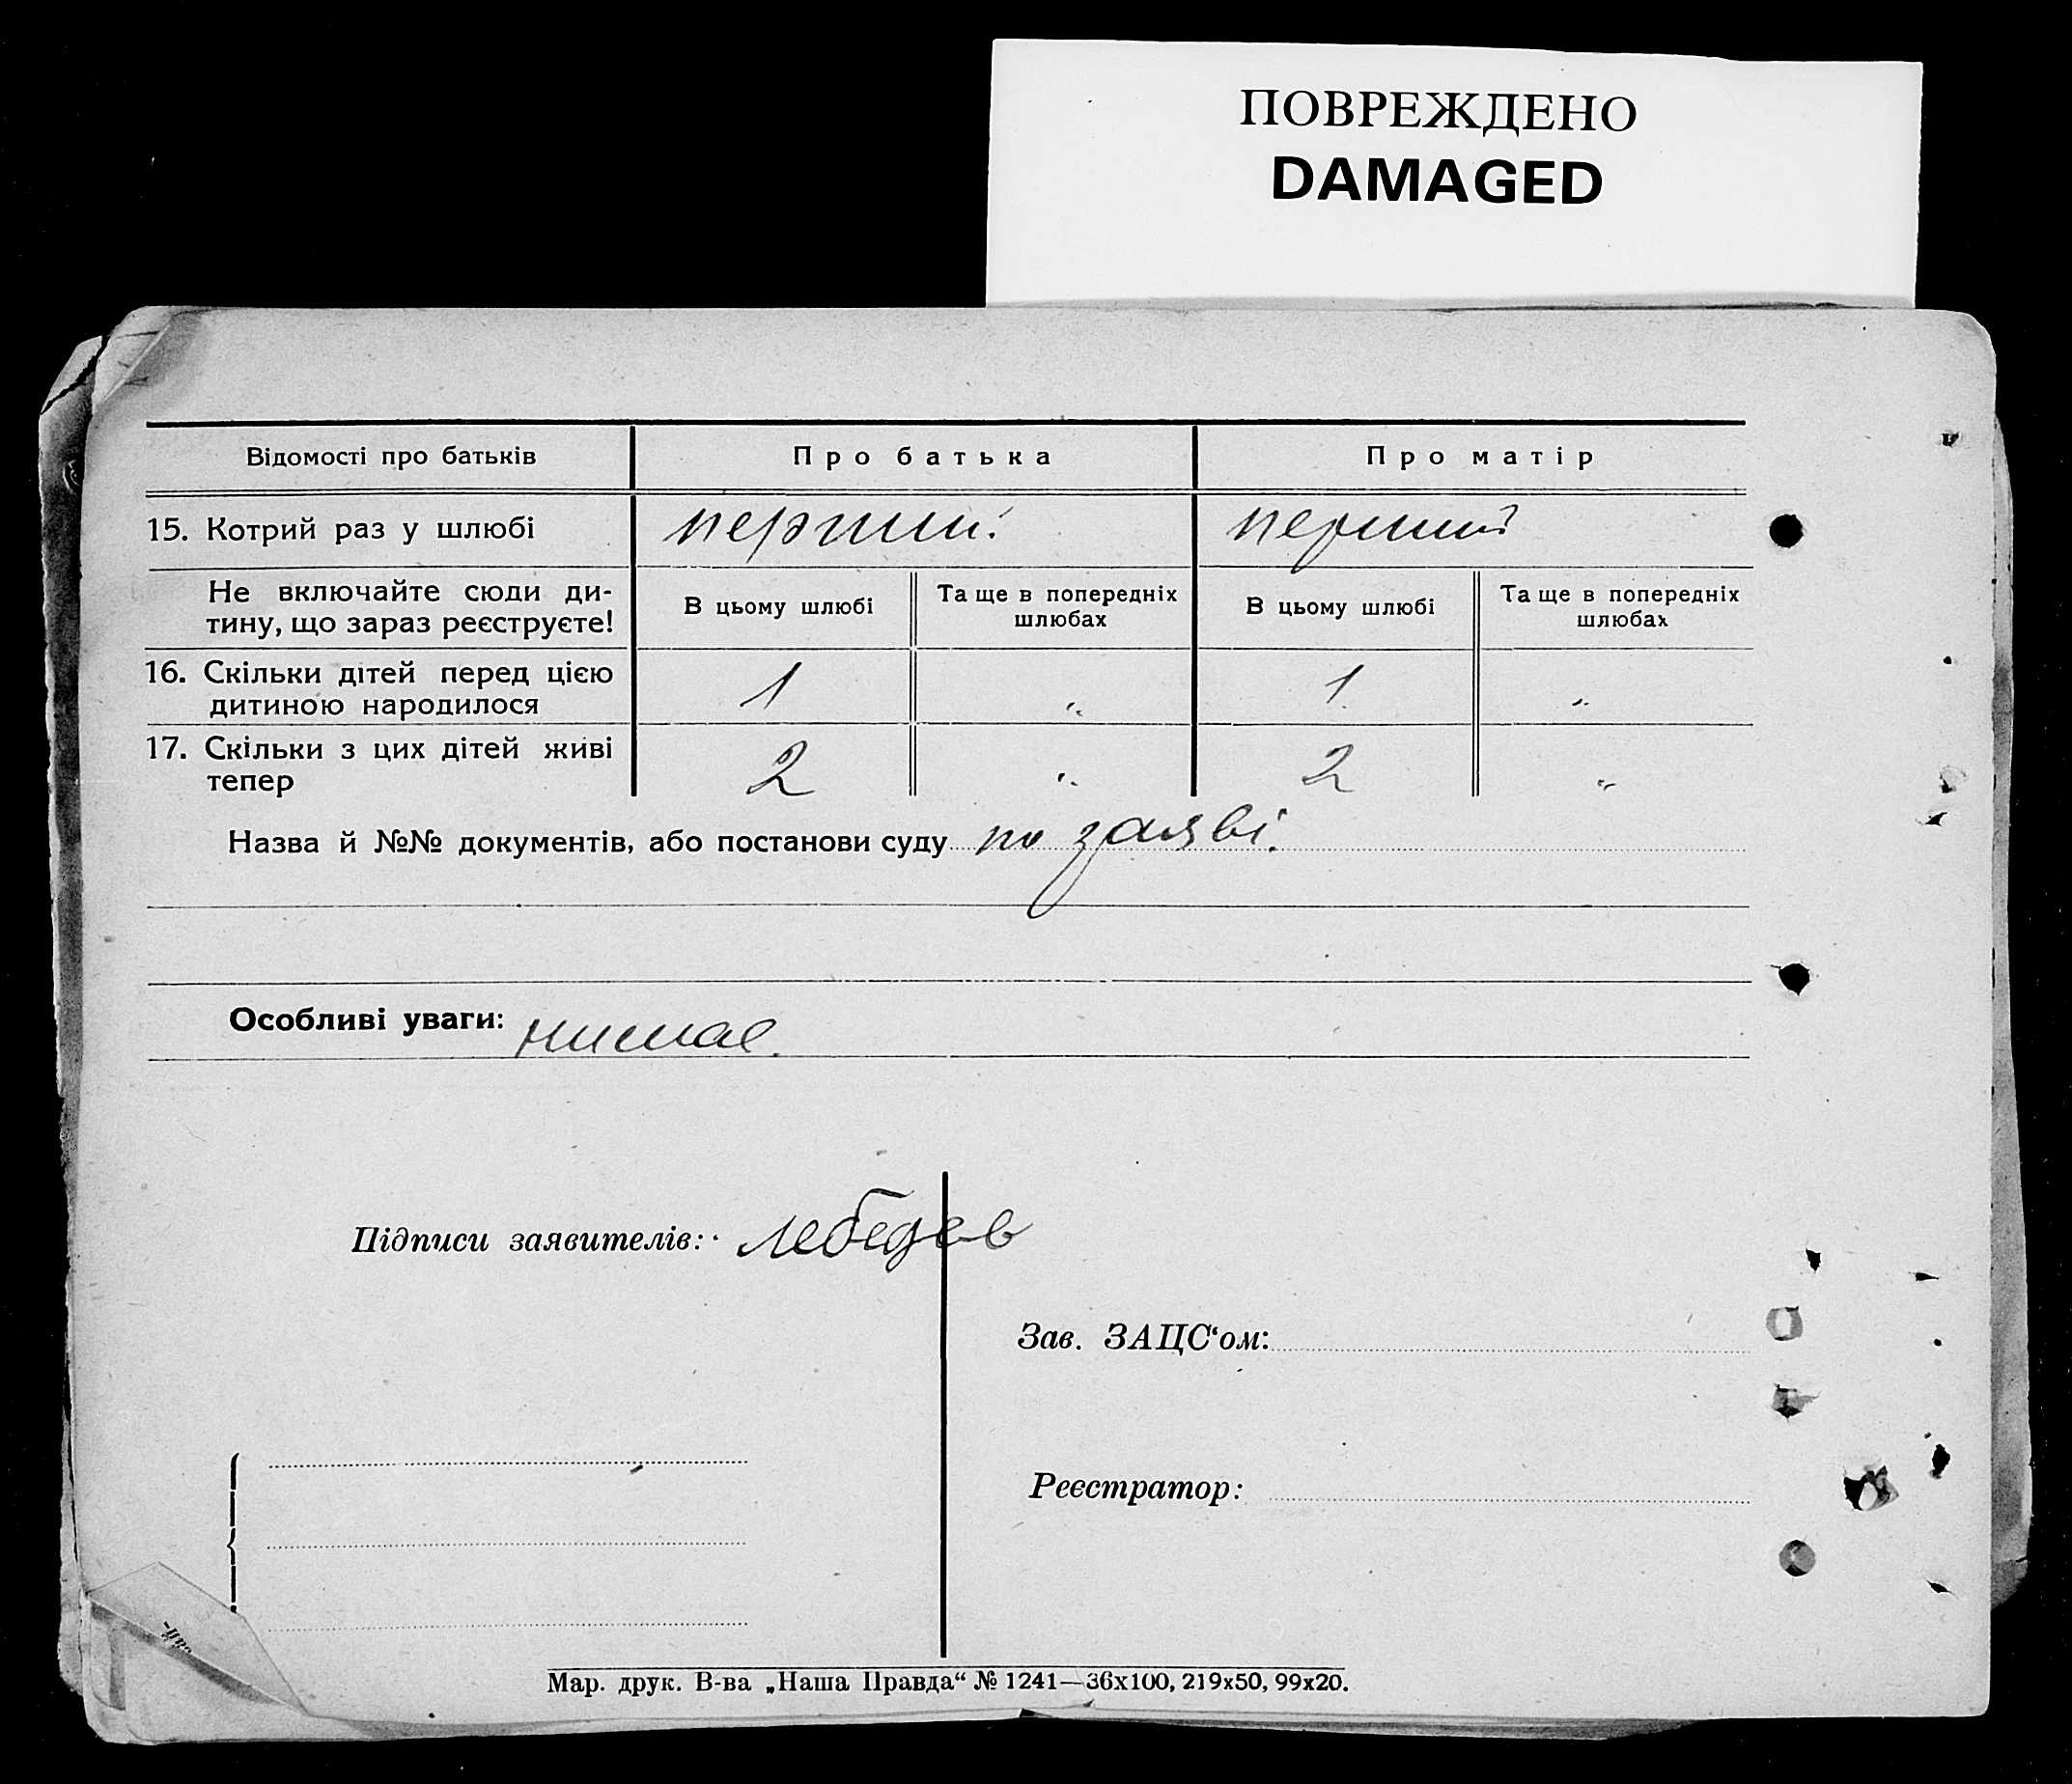 ПОВРЕЖДЕНО
DAMAGED
Відомості про батьків Про батька Про матір
15. Котрий раз у шлюбі перший перший
Не включайте сюди ди-
тину, що зараз реєструєте!
В цьому шлюбі Та ще в попередніх шлюбах В цьому шлюбі Та ще в попередніх шлюбах
16. Скільки дітей перед цією
дитиною народилося 1 " 1 "
17. Скільки з цих дітей живі
тепер 2 " 2 "
Назва й №№ документів, або постанови суду по заяві.
Особливі уваги: нимае.
Підписи заявителів: Лебедев
Зав. ЗАЦС‘ом:
Реєстратор:
Мар. друк. В-ва „Наша Правда“ № 1241—36x100, 219x50, 99x20.